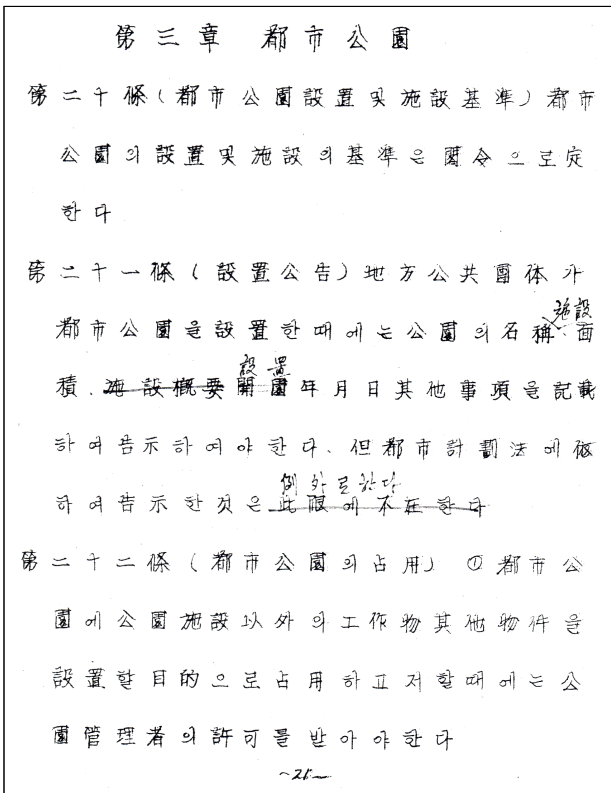 第三章 都市公園
第二十條(都市公園設置및施設基準)都市
公園의設置및施設의基準은閣令으로定
한다
第二十一條(設置公告)地方公共團体가
都市公園을設置한때에는公園의名稱 施設 面
積.施設槪要開園 設置 年月日其他事項을記載
하여告示하여야한다. 但都市計劃法에依
하여告示한것은此限에不在한다 例外로한다
第二十二條(都市公園의占用) ①都市公
園에公園施設以外의工作物其他物件을
設置할目的으로占用하고저할때에는公
園管理者의許可를받아야한다